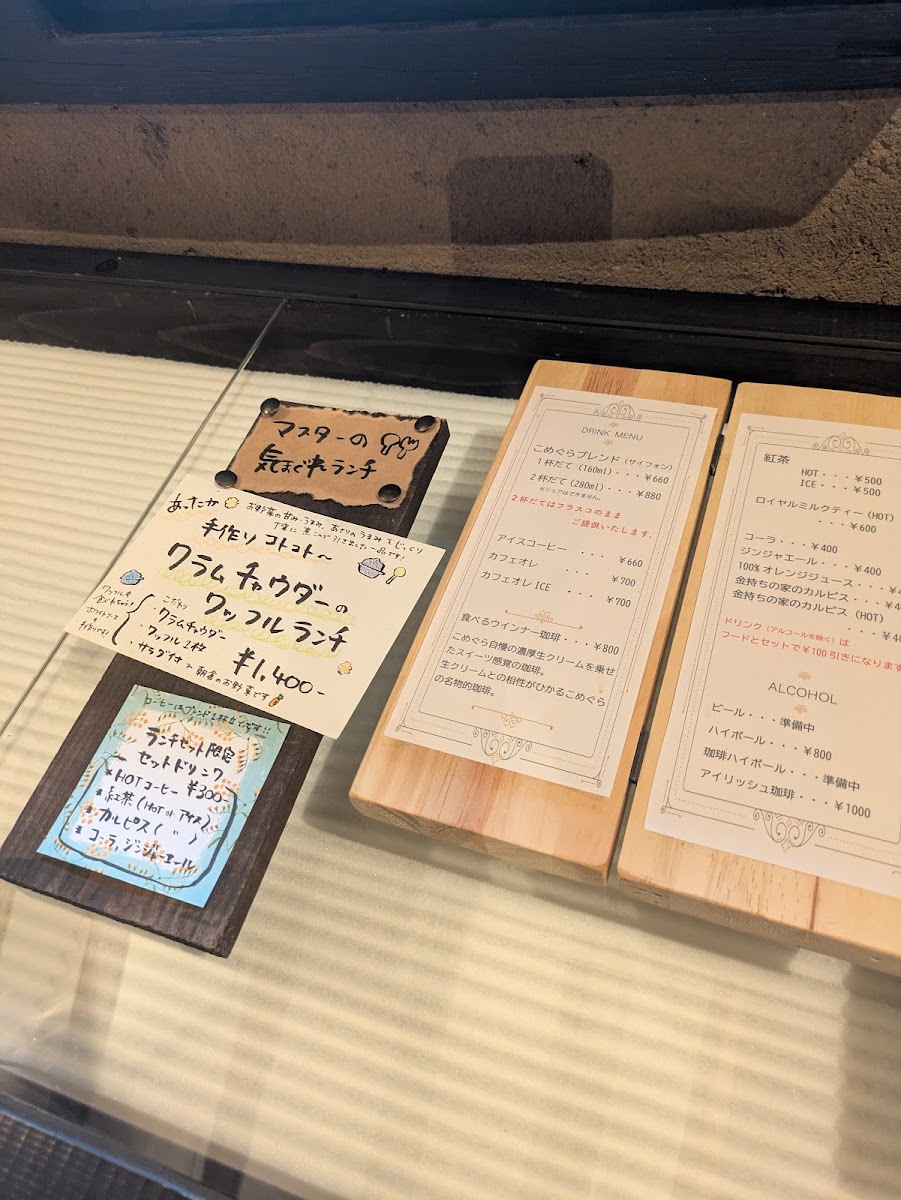 マスターの
気まぐれランチ
あったか
お野菜の甘み・うまみ、あさりのうまみをじっくり
丁寧に煮こんで引き出した一品です!
手作り コトコト〜
クラムチャウダーの
ワッフルランチ
こだわり
クラムチャウダー
・ワッフル2枚
・サラダ付き > 朝倉のお野菜です
¥1,400-
ホワイトソース
手作りです!
コーヒーはブレンド1杯立てです!!
ランチセット限定
セットドリンク
¥300-
* HOTコーヒー
* 紅茶(HOT or アイス)
* カルピス( 〃 )
* コーラ、ジンジャーエール
DRINK MENU
こめぐらブレンド (サイフォン)
1杯だて (160ml)・・・¥660
2杯だて (280ml)・・・・¥880
※シェアはできません。
2杯だてはフラスコのまま
ご提供いたします。
アイスコーヒー ・・・・ ¥660
カフェオレ ・・・ ¥700
カフェオレ ICE ・・・ ¥700
食べるウインナー珈琲・・・・¥800
こめぐら自慢の濃厚生クリームを乗せ
たスイーツ感覚の珈琲。
生クリームとの相性がひかるこめぐら
の名物的珈琲。
紅茶
HOT・・・¥500
ICE・・・¥500
ロイヤルミルクティー (HOT)
・・・・¥600
コーラ・・・¥400
ジンジャエール・・・¥400
100% オレンジジュース・・・
金持ちの家のカルピス・・・
金持ちの家のカルピス (HOT)
ドリンク (アルコールを除く) は
フードとセットで¥100 引きになります
ALCOHOL
ビール・・・準備中
ハイボール・・・¥800
珈琲ハイボール・・・準備中
アイリッシュ珈琲・・・¥1000